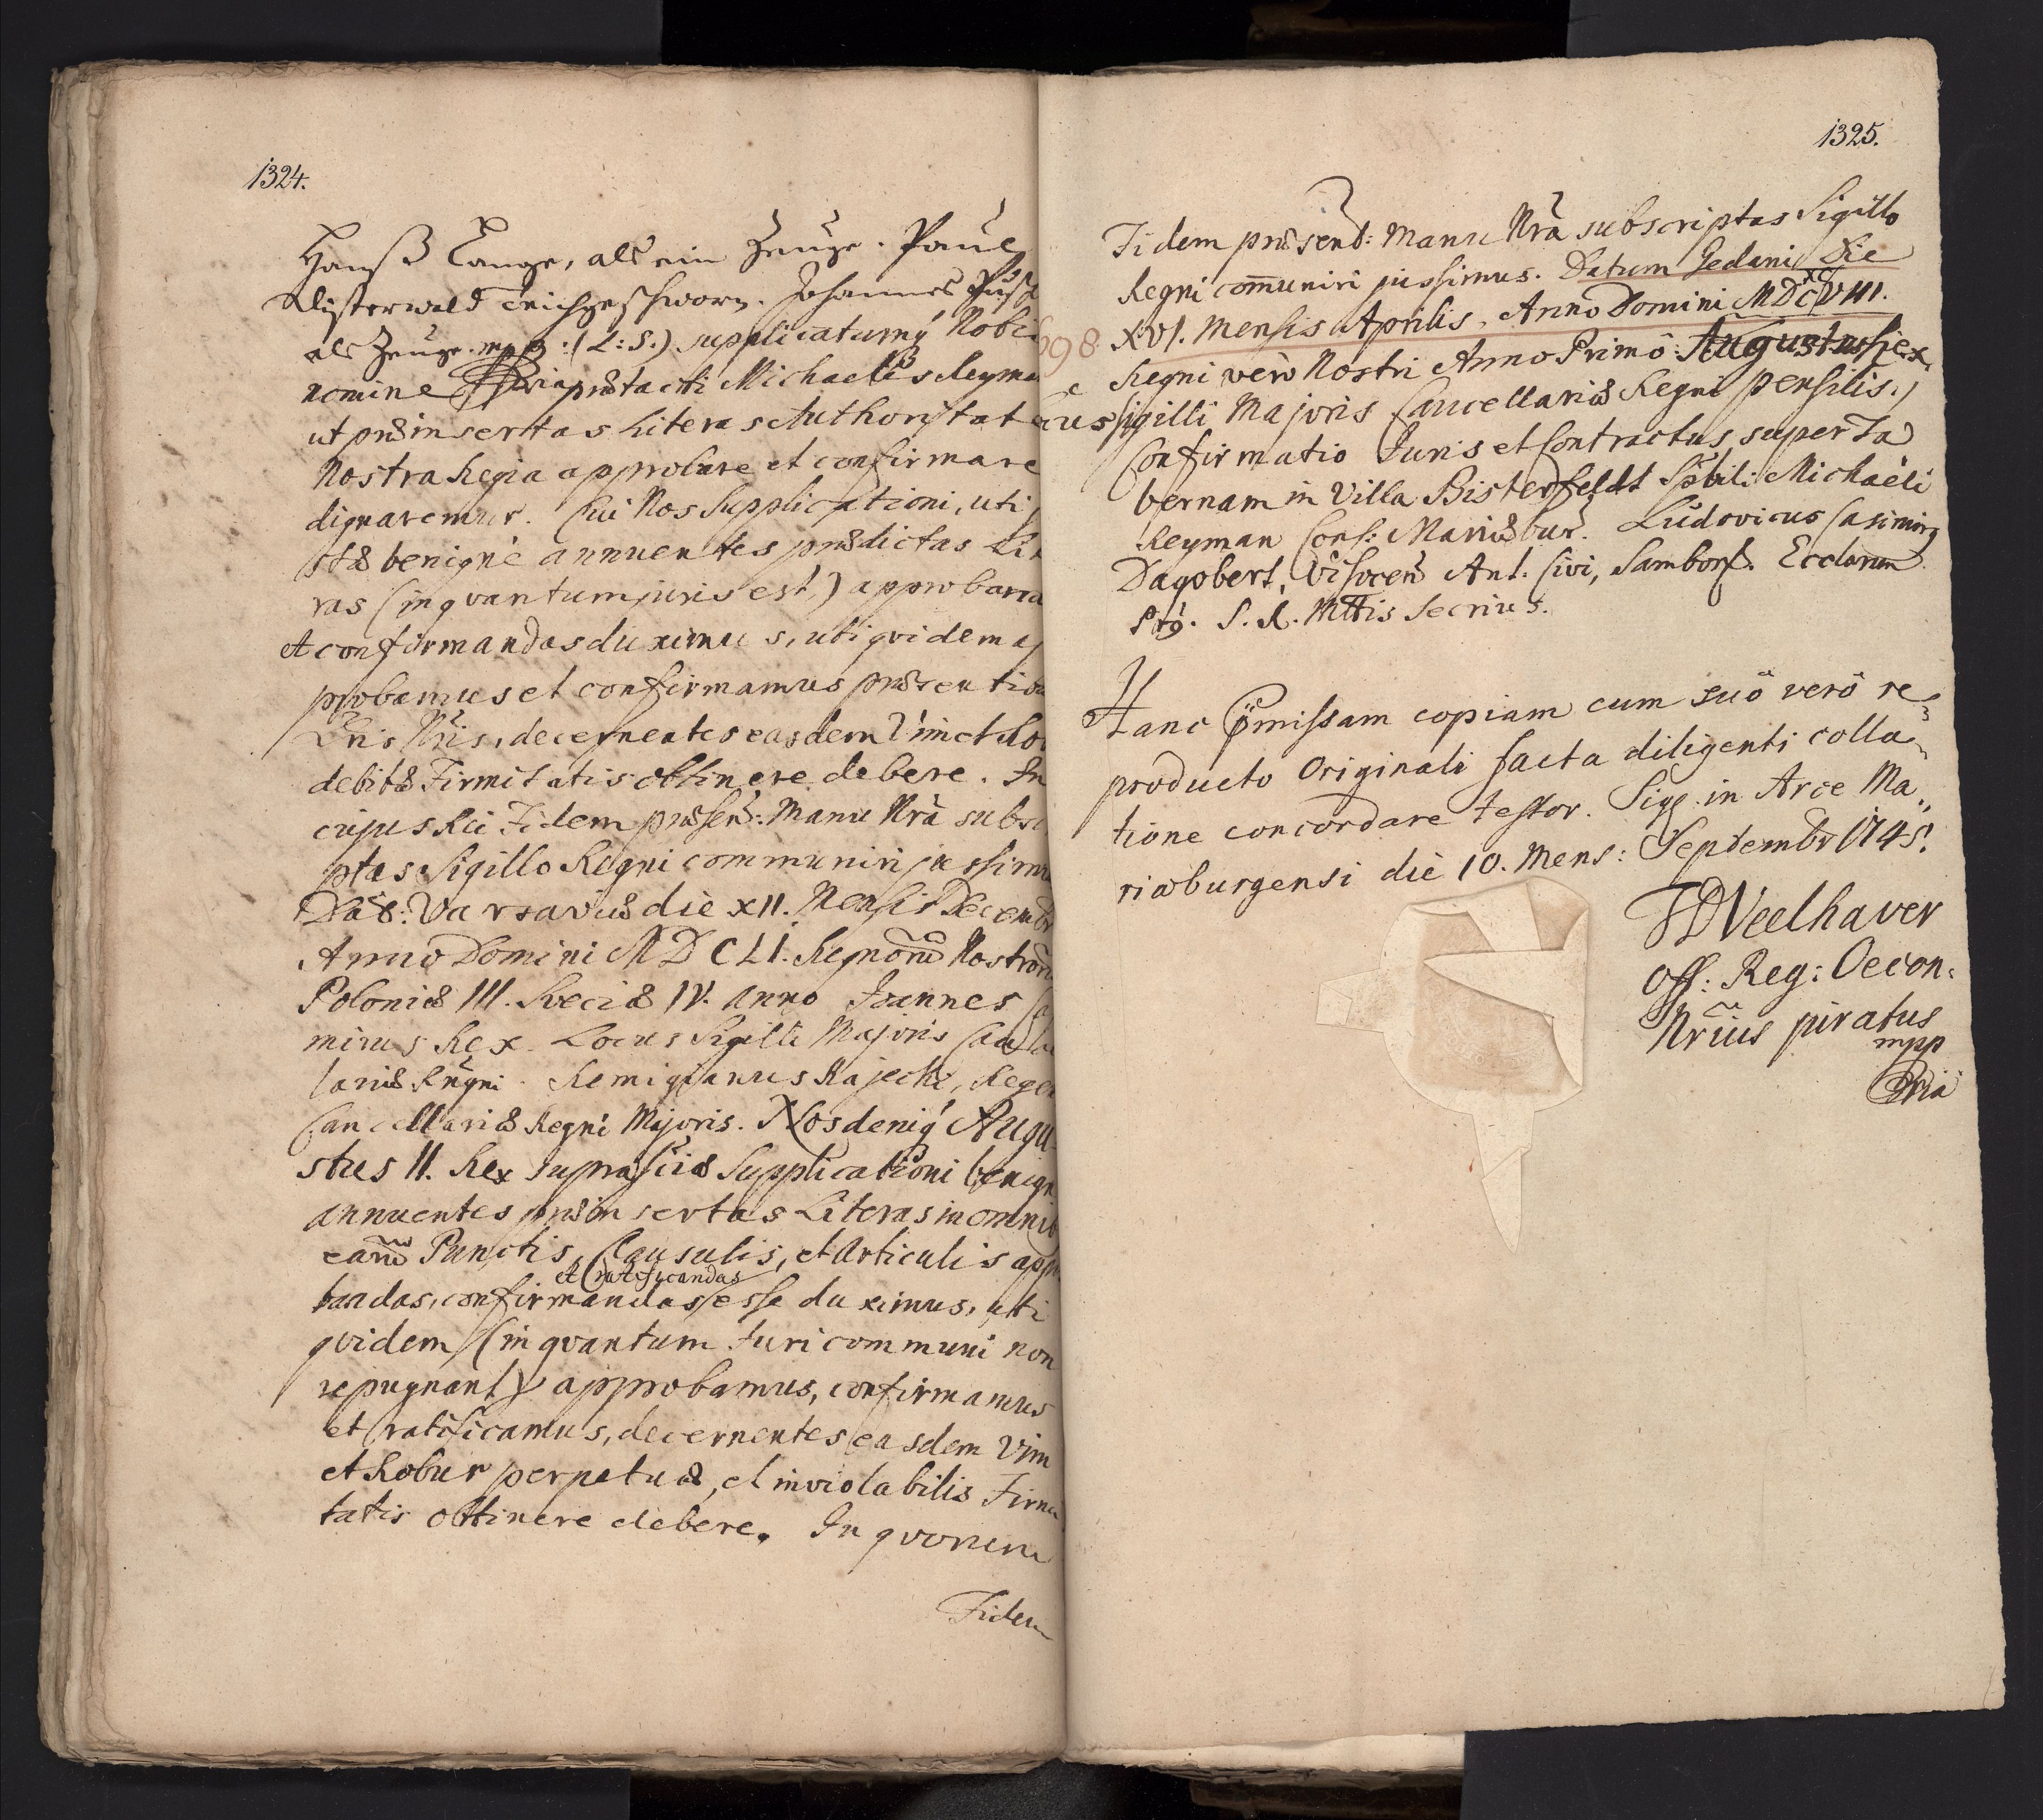 1324.
Hanß Lange, als ein Zeuge. Paul
Klisterwald Teichgeschworn. Johannes
als Zeuge. mpp. (L: S.) supplicatumq́ Nobis
nomine prætacti Michaelis Reyman
ut præinsertas Literas Authoritate
Nostra Regia approbare et confirmare
dignaremur. Cui Nos Supplicationi, uti
stæ benigne annuentes prædictas Lit
ras (in qvantum juris est,) approbana
et confirmandas duximus, uti qvidem ap
probamus et confirmamus præsentibus
Lris Nris, decernentes easdem vim et Ro
debitæ Firmitatis obtinere debere. In
cujus Rei Fidem præsen: Manu Nrã subscri
ptas Sigillo Regni communiri jussimus
Dat: Varsaviæ die XII. Mensis Decembr
Anno Domini MDCLI. Regnorũ Nostrorũ
Poloniæ III. Sveciæ IV. anno Joannes Ca
mirus Rex. Locus Sigilli Majoris Can
lariæ Regni. Remigianus Rajecki, Regen
Cancellariæ Regni Majoris. Nos deniq́ Augu-
stus II. Rex supra Supplicationi benigne
annuentes præinsertas Literas in omnib
earũ Punctis, Clausulis, et Articulis appro
bandas, confirmandas et ratificandas esse duximus, uti
qvidem (in qvantum Juri communi non
repugnant) approbamus, confirmamus
et ratificamus, decernentes easdem Vim
et Robur perpetuæ, et inviolabilis Firmi
tatis obtinere debere. In qvorum
Fidem
1325.
Fidem præsent: Manu Nrã subscriptas Sigillo
Regni comuniri jussimus. Datum Gedani Die
698 XVI. Mensis Aprilis, Anno Domini MDCXCVIII.
Regni verò Nostri Anno Primô: Augustus Rex.
Sigilli Majoris Cancellariæ Regni pensilis.)
Confirmatio Juris et Contractus super Ta
bernam in Villa Bisterfeldt Spbili Michaëli
Reyman Cons: Mariæbur. Ludovicus Casimirg
Dagobert, Ant. Civi, Sambors. Ecclarum
S. R. Mttis Secrius.
Hanc pmissam copiam cum suô verô re-
producto Originali facta diligenti colla-
tione concordare testor. Sig. in Arce Ma-
riæburgensi die 10. Mens: Septembr 1745.
Veelhaver
Off: Reg: Oecon:
Nrius juratus
mpp